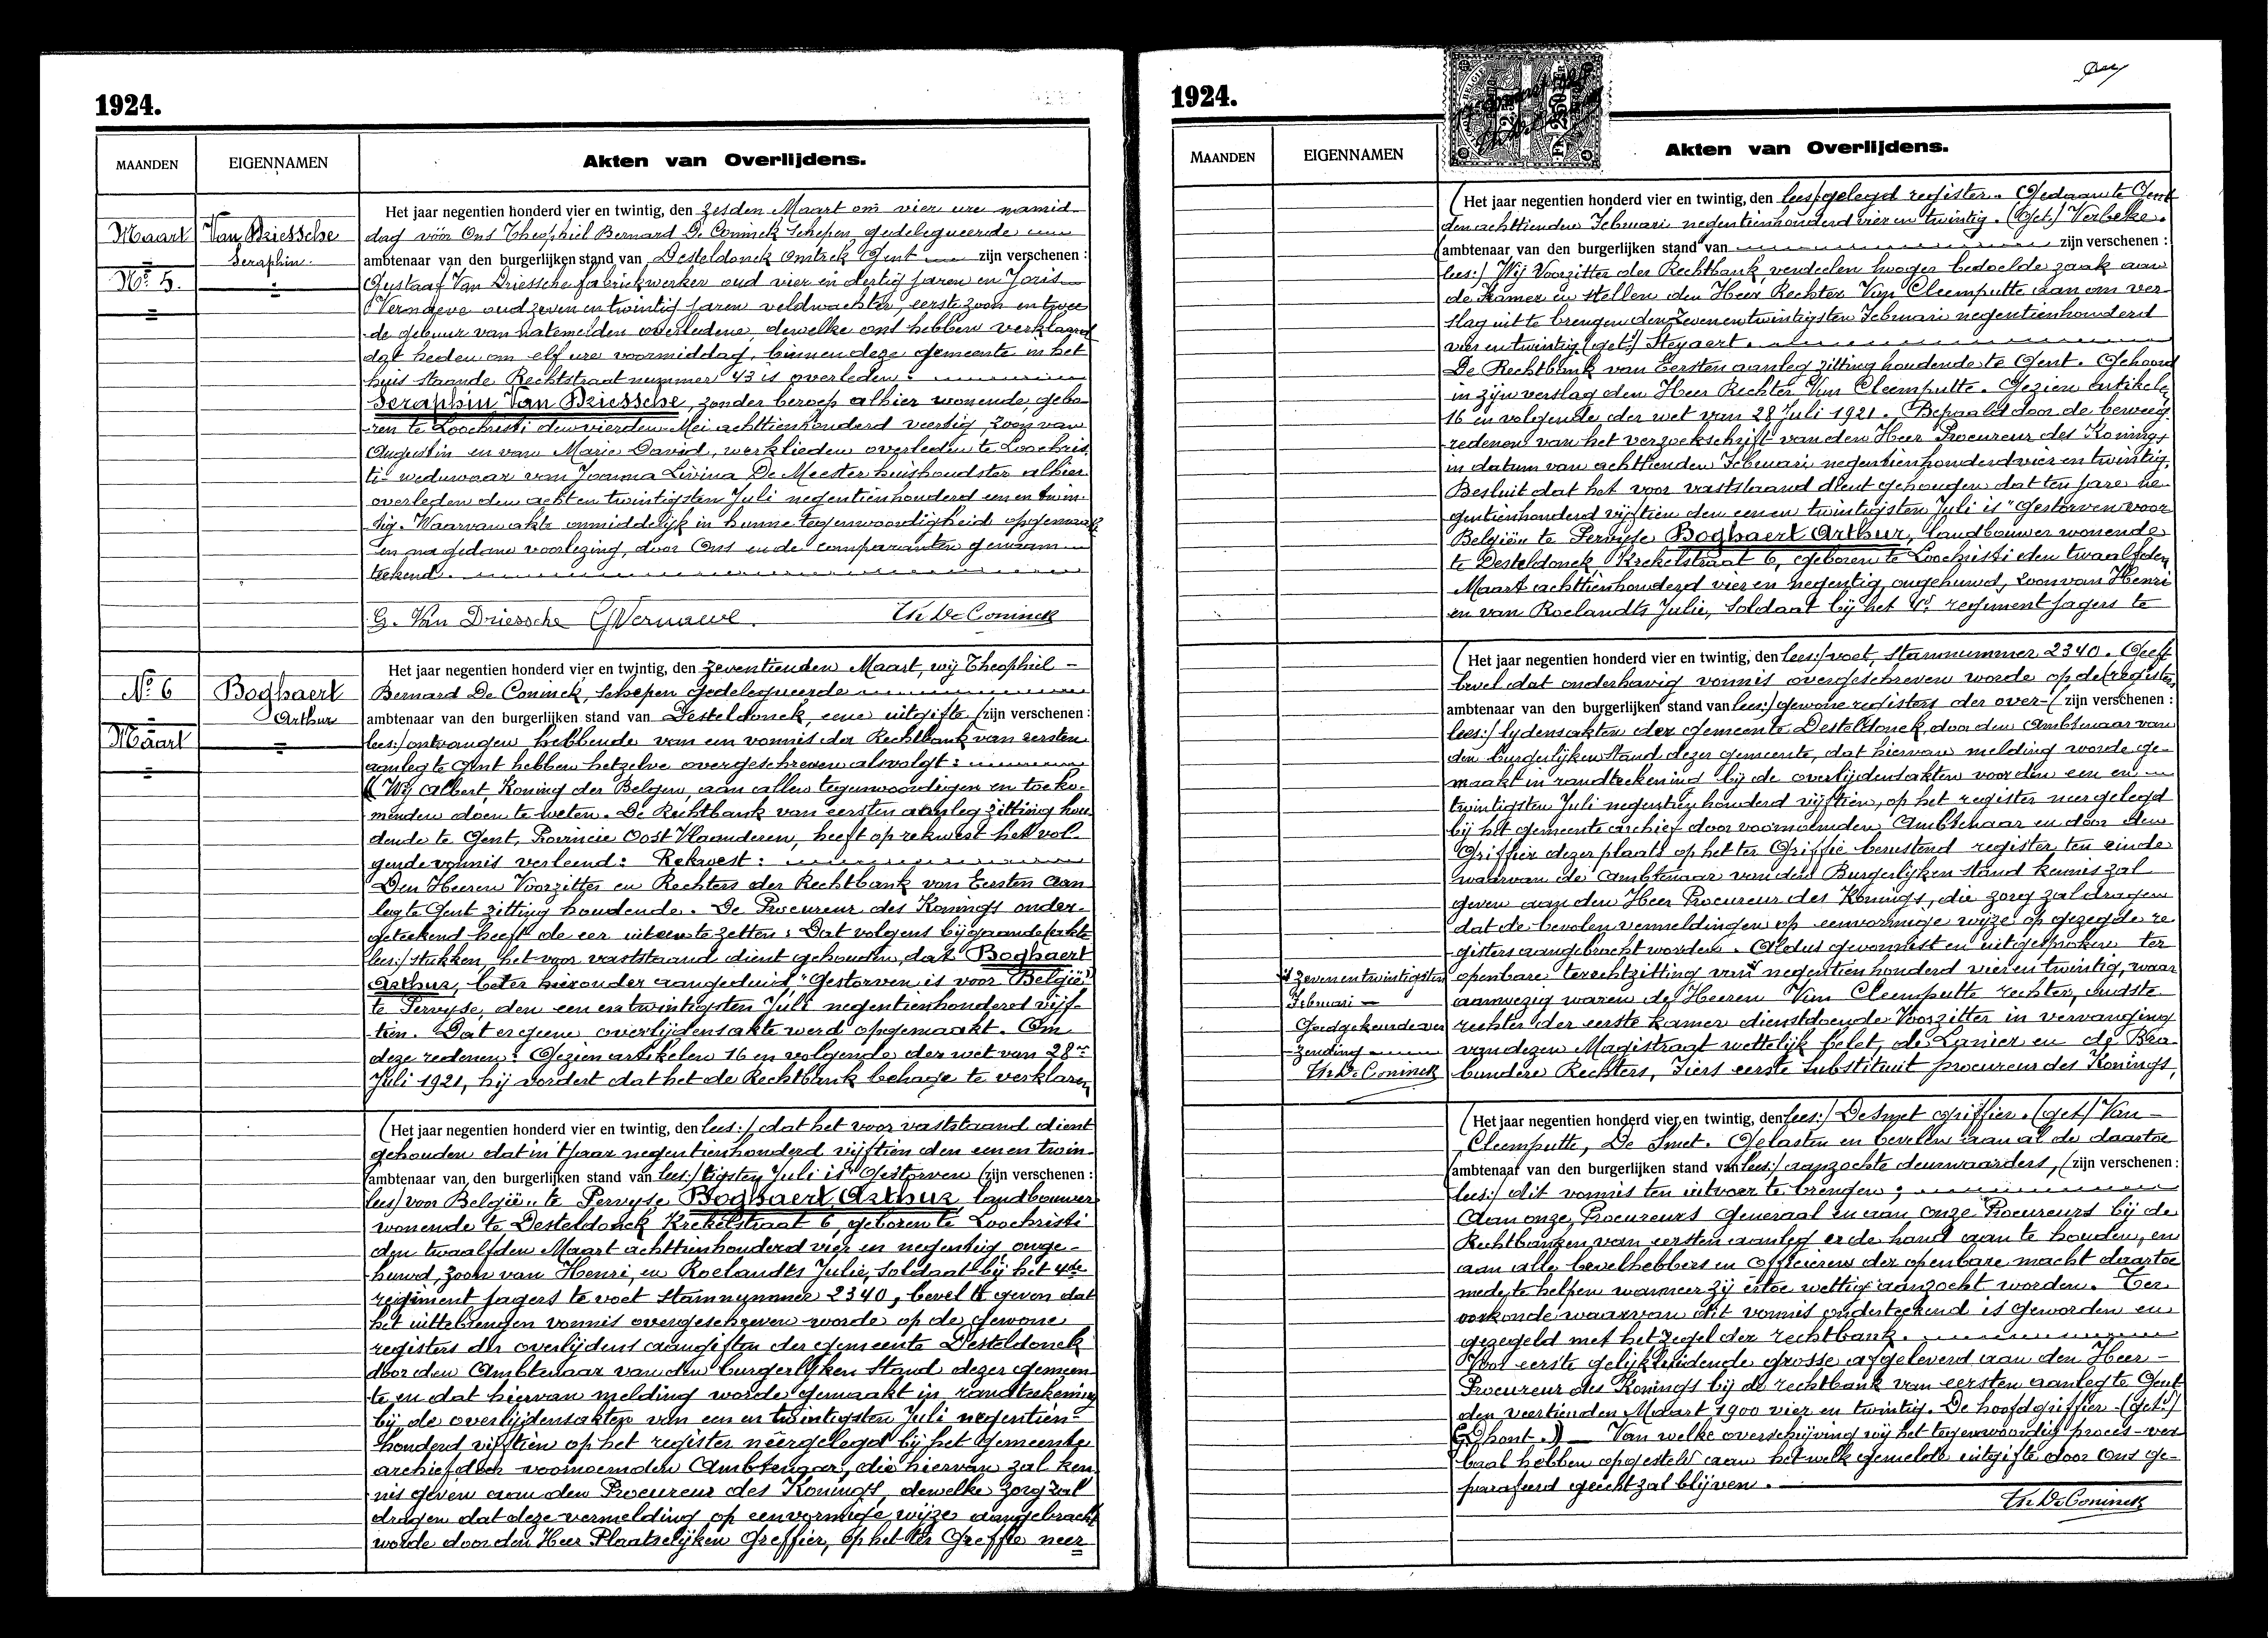 1924.
MAANDEN
EIGENNAMEN
Akten van Overlijdens.
Maart
Nº 5.
Van Driessche
Seraphin.
Het jaar negentien honderd vier en twintig, den zesden Maart om vier ure namid-
dag vóór Ons Theophiel Bernard De Coninck Schepen gedelegueerde
ambtenaar van den burgerlijken stand van Desteldonck Omtrek Gent zijn verschenen :
Gustaaf Van Driessche fabriekwerker oud vier en dertig jaren en Joris
Vernaeve oud zeven en twintig jaren veldwachter, eerste zoon en twee
de gebuur van natemelden overledene, dewelke ons hebben verklaard
dat heden om elf ure voormiddag, binnen deze gemeente in het
huis staande Rechtstraat nummer 43 is overleden :
Seraphin Van Driessche, zonder beroep alhier wonende, gebo-
ren te Loochristi den vierden Mei achttienhonderd veertig, zoon van
Augustin en van Marie David, werklieden overleden te Loochris
ti weduwaar van Joanna Livina De Meester huishoudster alhier
overleden den acht en twintigsten Juli negentienhonderd een en twin-
tig. Waarvan akte onmiddelijk in hunne tegenwoordigheid opgemaakt
en na gedane voorlezing, door Ons en de comparanten genaam-
tekend.
G. Van Driessche GVernaeve. Th De Coninck
Nº 6
Maart
Boghaert
Arthur
Het jaar negentien honderd vier en twintig, den zeventienden Maart, wij Theophiel -
Bernard De Coninck, Schepen gedelegueerde
ambtenaar van den burgerlijken stand van Desteldonck, eene uitgifte (zijn verschenen :
lees:) ontvangen hebbende van een vonnis der Rechtbank van eersten
aanleg te Gent hebben hetzelve overgeschreven alsvolgt :
(Wij Albert, Koning der Belgen, aan allen tegenwoordigen en toeko-
menden doen te weten. De Rechtbank van eersten aanleg zitting hou
dende te Gent, Provincie Oost Vlaanderen, heeft op rekwest het vol-
gende vonnis verleend : Rekwest :
Den Heeren Voorzitter en Rechters der Rechtbank van Eersten aan
leg te Gent zitting houdende. De Procureur des Konings onder-
geteekend heeft de eer uiteen te zetten : Dat volgens bijgaande (akte
lees:) stukken, het voor vaststaand dient gehouden, dat Boghaert
Arthur, beter hieronder aangeduid, "Gestorven is voor België"
te Pervyse, den een en twintigsten Juli negentienhonderd vijf-
tien. Dat er geene overlijdensakte werd opgemaakt. Om
deze redenen : Gezien artikelen 16 en volgende der wet van 28en
Juli 1921, hij vordert dat het de Rechtbank behage te verklaren,
(Het jaar negentien honderd vier en twintig, den lees:) dat het voor vaststaand dient
gehouden dat in 't jaar negentienhonderd vijftien den een en twin-
(ambtenaar van den burgerlijken stand van lees:) tigsten Juli is "Gestorven (zijn verschenen :
lees) voor België" te Pervyse Boghaert Arthur, landbouwer
wonende te Desteldonck Krekelstraat 6, geboren te Loochristi
den twaalfden Maart achttienhonderd vier en negentig, onge-
huwd, zoon van Henri, en Roelandts Julie, Soldaat bij het 4de
regiment jagers te voet Stamnummer 2340, bevel te geven dat
het uittebrengen vonnis overgeschreven worde op de gewone
registers der overlijdens aangiften der gemeente Desteldonck
door den Ambtenaar van den burgerlijken Stand dezer gemeen
te en dat hiervan melding worde gemaakt in randteekening
bij de overlijdensakten van een en twintigsten Juli negentien-
honderd vijftien op het register neêrgelegd bij het Gemeente
archief door voornoemden Ambtenaar, die hiervan zal ken
nis geven aan den Procureur des Konings, dewelke zorg zal
dragen dat deze vermelding op eenvormige wijze aangebracht
worde door den Heer Plaatselijken Greffier, op het ter Greffie neer
1924.
MAANDEN
EIGENNAMEN
Akten van Overlijdens.
(Het jaar negentien honderd vier en twintig, den lees) gelegd register. Gedaan te Gent
den achttienden Februari negentienhonderd vier en twintig. (Get.) Verbeke.
(ambtenaar van den burgerlijken stand van zijn verschenen :
lees:) Wij Voorzitter der Rechtbank, verdeelen hooger bedoelde zaak aan
de Kamer en stellen den Heer Rechter Van Cleemputte aan om ver-
slag uit te brengen den zevenentwintigsten Februari negentienhonderd
vier en twintig. (get.) Steyaert.
De Rechtbank van Eersten aanleg zitting houdende te Gent. Gehoord
in zijn verslag den Heer Rechter Van Cleemputte. Gezien artikels
16 en volgende der wet van 28 Juli 1921. Bepaald door de beweeg
redenen van het verzoekschrift van den Heer Procureur des Konings
in datum van achttienden Februari negentienhonderd vier en twintig,
Besluit dat het voor vaststaand dient gehouden dat ten jare ne
gentienhonderd vijftien den een en twintigsten Juli is "Gestorven voor
België" te Pervyse Boghaert Arthur, landbouwer wonende
te Desteldonck, Krekelstraat 6, geboren te Loochristi den twaalfden
Maart achttienhonderd vier en negentig, ongehuwd, zoon van Henri
en van Roelandts Julie, Soldaat bij het 4e regiment jagers te
(Het jaar negentien honderd vier en twintig, den lees:) voet, stamnummer 2340. Geeft
bevel dat onderhavig vonnis overgeschreven worde op de (registers
ambtenaar van den burgerlijken stand van lees:) gewone registers der over- (zijn verschenen :
lees:) lydensakten der gemeente Desteldonck, door den Ambtenaar van
den burgerlijken Stand dezer gemeente, dat hiervan melding worde ge-
maakt in randteekening bij de overlijdensakten voor den een en
twintigsten Juli negentienhonderd vijftien, op het register neergelegd
bij het gemeente archief door voornoemden Ambtenaar en door den
Griffier dezer plaats op het ter Griffie berustend register, ten einde
waarvan de Ambtenaar van den Burgerlijken stand kennis zal
geven aan den Heer Procureur des Konings, die zorg zal dragen
dat de bevolen vermeldingen op eenvormige wijze op gezegde re
gisters aangebracht worden. Aldus gevonnist en uitgesproken ter
openbare terechtzitting van negentienhonderd vier en twintig, waar
aanwezig waren de Heeren Van Cleemputte rechter, oudste
rechter der eerste kamer dienstdoende Voorzitter in vervanging
van dezen Magistraat wettelijk belet, de Lanier en de Bra-
bandere Rechters, Tiers eerste Substituut procureur des Konings,
zevenentwintigsten
Februari
Goedgekeurde ver
zending
Th De Coninck
(Het jaar negentien honderd vier en twintig, den lees:) De Smet griffier. (get) Van -
Cleemputte, De Smet. Gelasten en bevelen aan al de daartoe
(ambtenaar van den burgerlijken stand van lees:) aanzochte deurwaarders, (zijn verschenen :
lees:) dit vonnis ten uitvoer te brengen ;
Aan onze Procureurs Generaal en aan onze Procureurs bij de
Rechtbanken van eersten aanleg er de hand aan te houden, en
aan alle bevelhebbers en Officieren der openbare macht daartoe
mede te helpen wanneer zij ertoe wettig aanzocht worden. Ter
oorkonde waarvan dit vonnis onderteekend is geworden en
gezegeld met het zegel der rechtbank.
Voor eerste gelijkluidende grosse afgeleverd aan den Heer -
Procureur des Konings bij de rechtbank van eersten aanleg te Gent
den veertienden Maart 1900 vier en twintig. De hoofdgriffier (get.)
D'hont.) — Van welke overschrijving wij het tegenwoordig proces-ver-
baal hebben opgesteld aan hetwelk gemelde uitgifte door Ons ge-
parafeerd gehecht zal blijven.
Th De Coninck